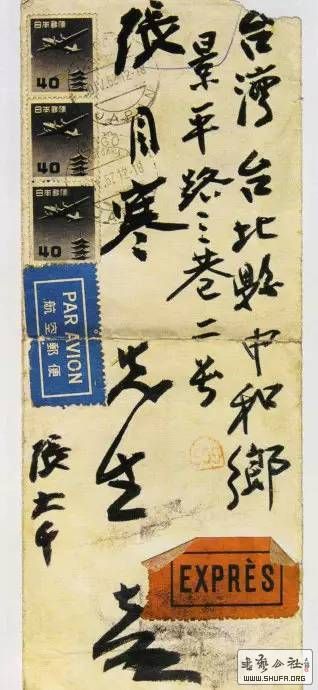 台灣 台北縣中和鄉
景平路三巷二号
張目寒 先生
張大千
日本郵便
40
日本郵便
40
日本郵便
40
PAR AVION
航空郵便
EXPRÈS
书艺公社
WWW.SHUFA.ORG